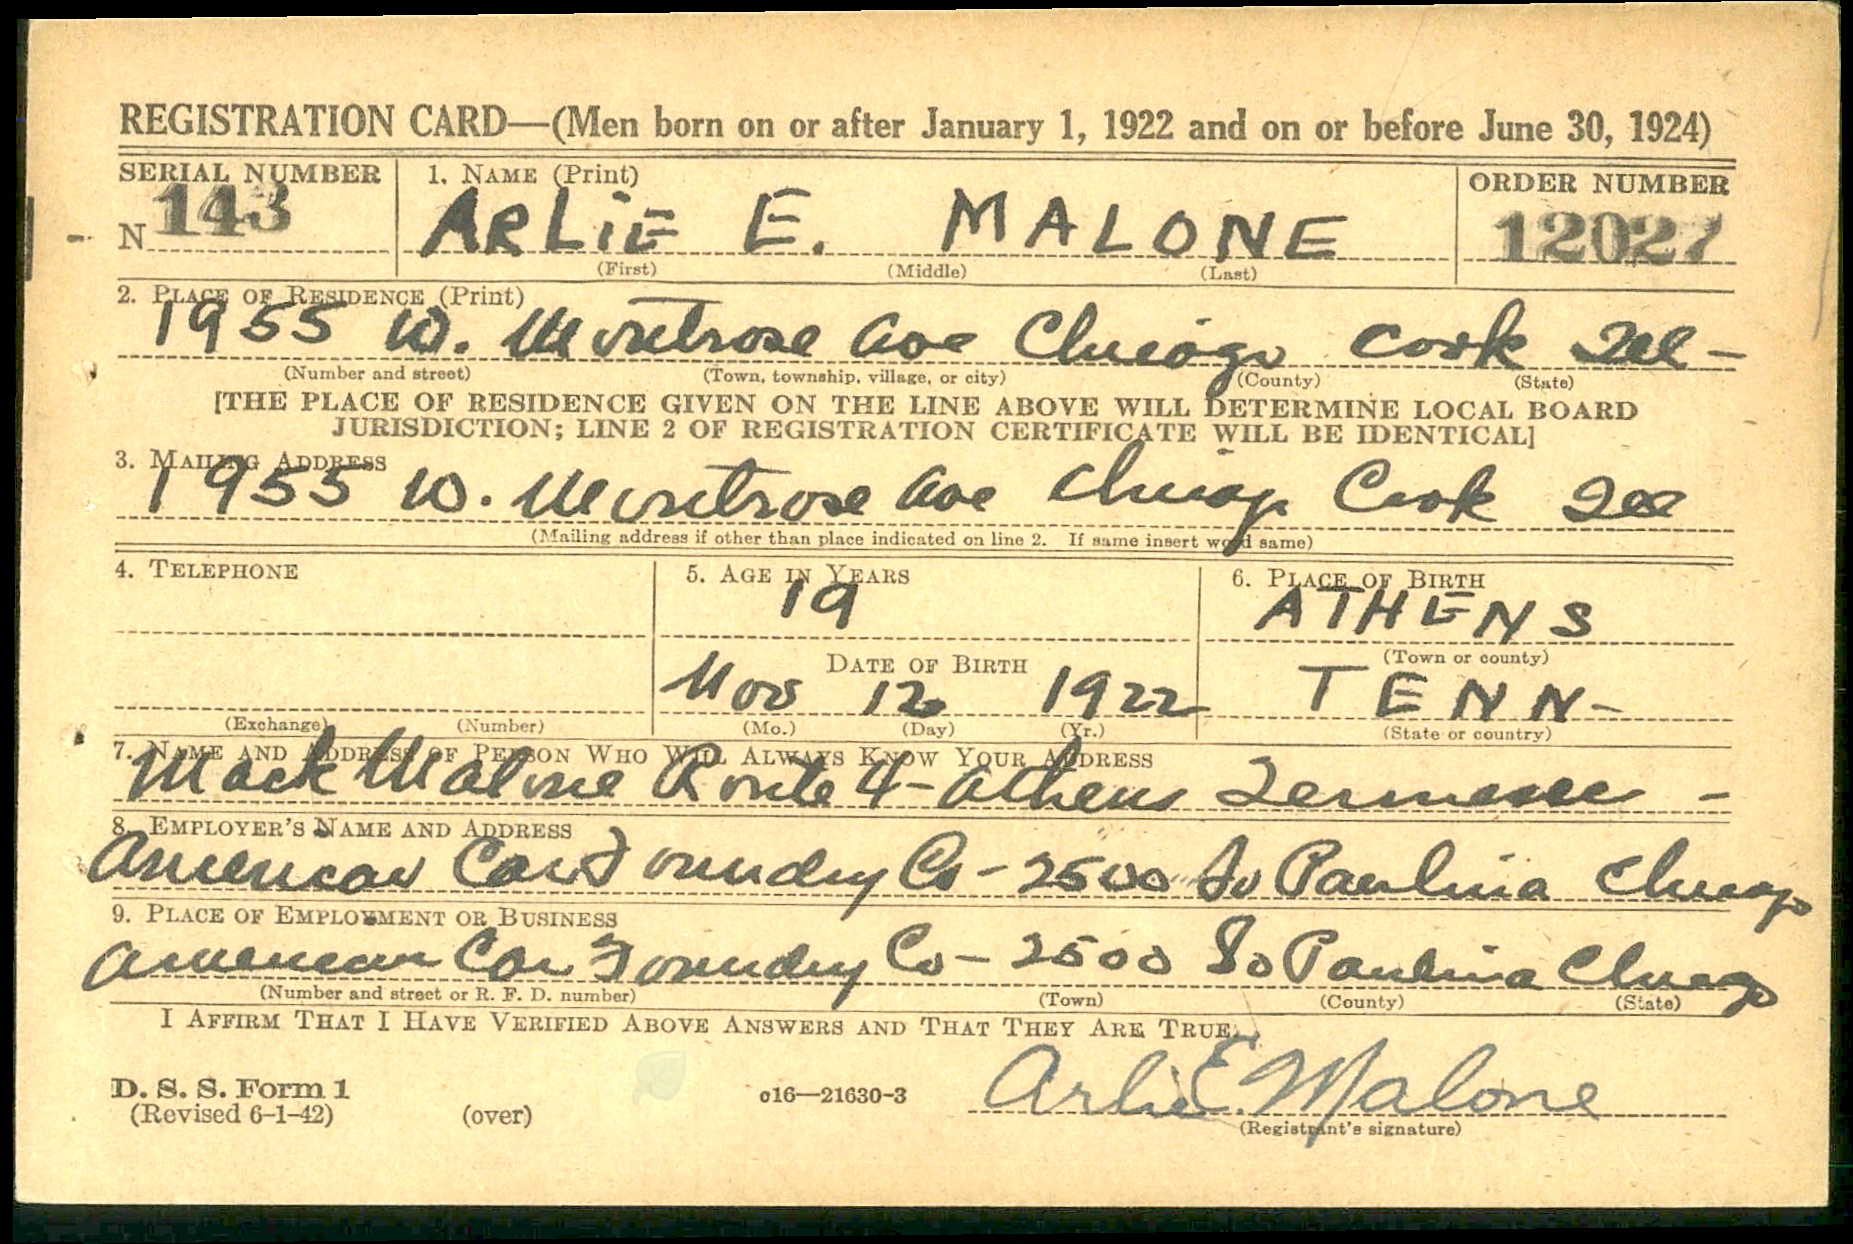 REGISTRATION CARD—(Men born on or after January 1, 1922 and on or before June 30, 1924)
SERIAL NUMBER 1. NAME (Print) ORDER NUMBER
N 143 ARLIE E. MALONE 12027
(First) (Middle) (Last)
2. PLACE OF RESIDENCE (Print)
1955 W. Montrose Ave Chicago Cook Ill -
(Number and street) (Town, township, village, or city) (County) (State)
[THE PLACE OF RESIDENCE GIVEN ON THE LINE ABOVE WILL DETERMINE LOCAL BOARD
JURISDICTION; LINE 2 OF REGISTRATION CERTIFICATE WILL BE IDENTICAL]
3. MAILING ADDRESS
1955 W. Montrose Ave Chicago Cook Ill
(Mailing address if other than place indicated on line 2. If same insert word same)
4. TELEPHONE 5. AGE IN YEARS 6. PLACE OF BIRTH
19 ATHENS
(Town or county)
DATE OF BIRTH
Nov 12 1922 TENN-
(Exchange) (Number) (Mo.) (Day) (Yr.) (State or country)
7. NAME AND ADDRESS OF PERSON WHO WILL ALWAYS KNOW YOUR ADDRESS
Mack Malone Route 4 - Athens Tennessee -
8. EMPLOYER'S NAME AND ADDRESS
American Car Foundry Co - 2500 So Paulina Chicago
9. PLACE OF EMPLOYMENT OR BUSINESS
American Car Foundry Co - 2500 So Paulina Chicago
(Number and street or R. F. D. number) (Town) (County) (State)
I AFFIRM THAT I HAVE VERIFIED ABOVE ANSWERS AND THAT THEY ARE TRUE.
Arlie E. Malone
D. S. S. Form 1
(Revised 6-1-42) (over) c16—21630-3
(Registrant's signature)